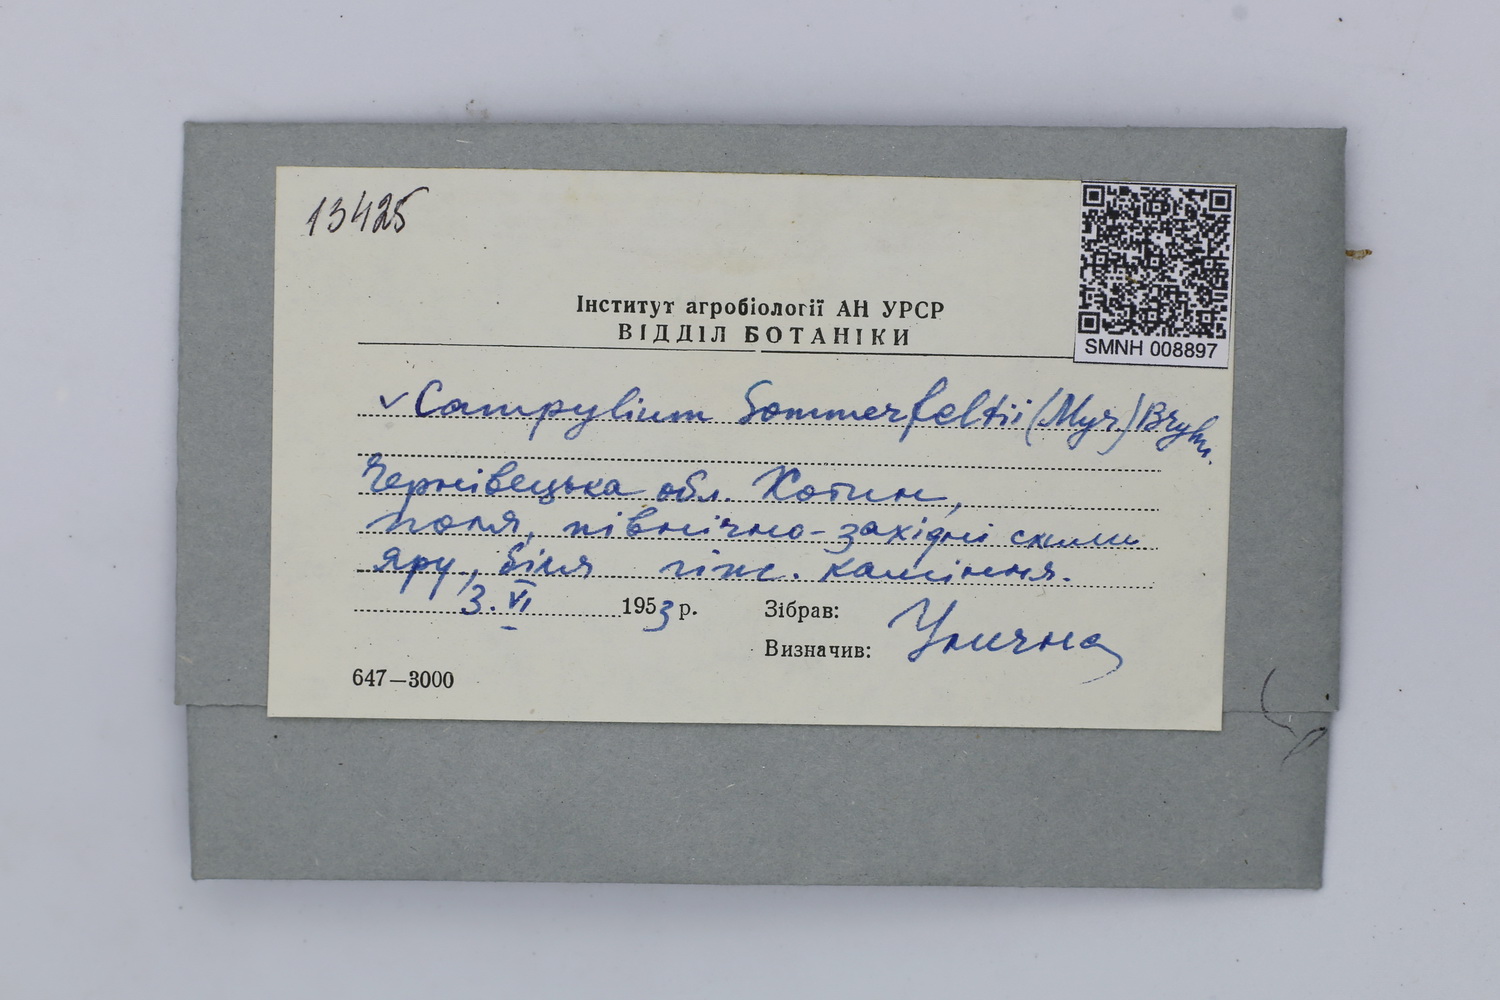 13425
SMNH 008897
Інститут агробіології АН УРСР
ВІДДІЛ БОТАНІКИ
✓ Campylium Sommerfeltii (Myr.) Bryhn.
Чернівецька обл. Хотин,
поля, північно-західні схили
яру, біля гіпс. каміння.
3. VI 1953 р.
Зібрав:
Визначив: Улична
647—3000